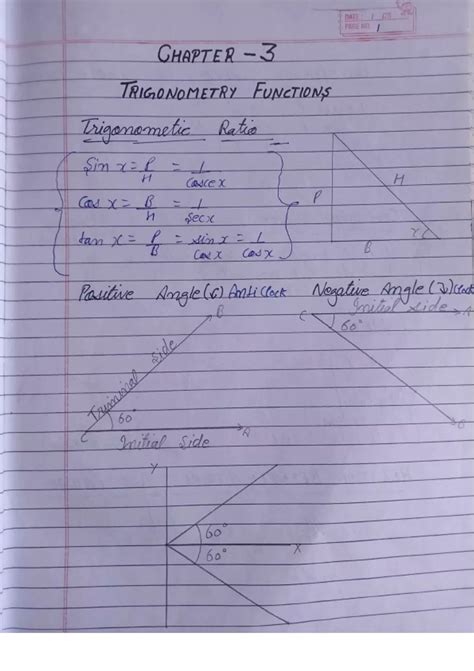 DATE
PAGE NO. 1
CHAPTER - 3
TRIGONOMETRY FUNCTIONS
Trigonometic Ratio
Sin x = P/H = 1/Coscex
Cos x = B/H = 1/Secx
tan x = P/B = sinx/Cosx = 1/Cosx
P
H
B
x
Positive Angle (↺) Anti Clock
Negative Angle (↻) Clock
B
Triminal side
60°
C
Initial Side
A
C
Initial side
A
60°
B
Y
60°
60°
X